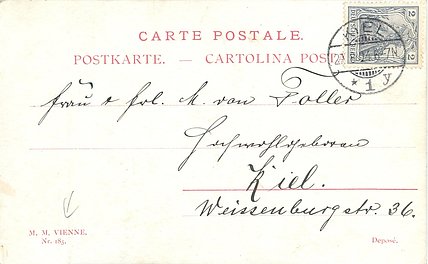 CARTE POSTALE.
POSTKARTE. — CARTOLINA POST
KIEL
1 y
2 2
Frau & Frl. M. von Toller
Hochwohlgeboren
Kiel.
Weissenburgstr. 36.
M. M. VIENNE.
Nr. 185.
Deposé.